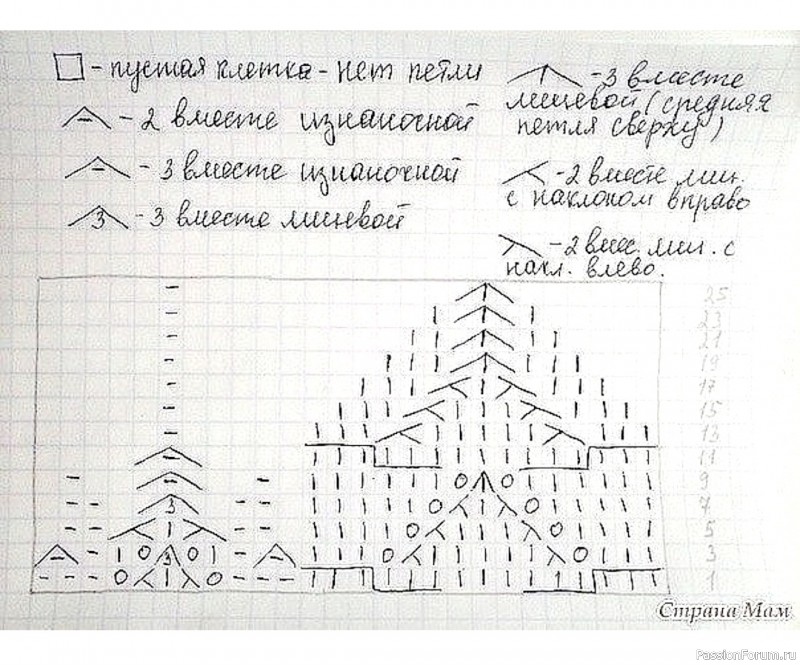 - пустая клетка - нет петли
- 2 вместе изнаночной
- 3 вместе изнаночной
3 - 3 вместе лицевой
- 3 вместе
лицевой (средняя
петля сверху)
- 2 вместе лиц.
с наклоном вправо
- 2 вмес. лиц. с
накл. влево.
25
23
21
19
17
15
13
11
9
7
3
5
3
3
1
Страна Мам
PassionForum.ru